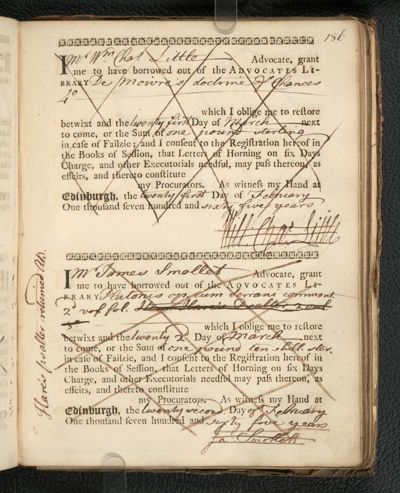 136
I Mr Wm Chas Little Advocate, grant
me to have borrowed out of the ADVOCATES LI-
BRARY De Moivre's doctrine of Chances
4o
which I oblige me to restore
betwixt and the twenty first Day of March next
to come, or the Sum of one pound sterling
in case of Failzie; and I consent to the Registration hereof in
the Books of Session, that Letters of Horning on six Days
Charge, and other Executorials needful, may pass thereon, as
effeirs, and thereto constitute
my Procurators. As witness my Hand at
Edinburgh, the twenty first Day of February
One thousand seven hundred and sixty five years
Will. Chas. Little
I Mr James Smollet Advocate, grant
me to have borrowed out of the ADVOCATES LI-
BRARY Platonis op. cum
2 vol fol.
which I oblige me to restore
betwixt and the twenty 2 Day of March next
to come, or the Sum of one pound ten shill. ster.
in case of Failzie, and I consent to the Registration hereof in
the Books of Session, that Letters of Horning on six Days
Charge, and other Executorials needful may pass thereon, as
effeirs, and thereto constitute
my Procurators. As witness my Hand at
Edinburgh, the twenty second Day of February
One thousand seven hundred and sixty five years
Ja: Smollett
psalter returned